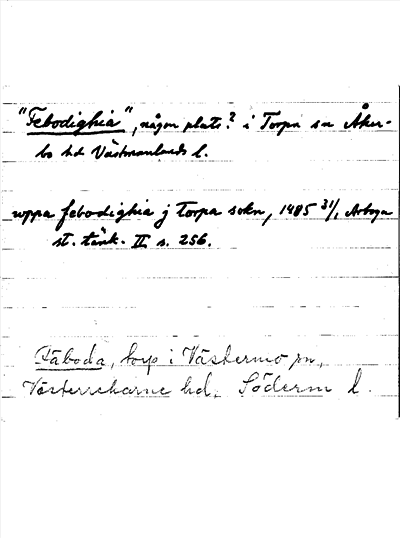 "Febodighia", någon plats? i Torpa sn Åker-
bo hd Västmanlands l.
uppa febodighia j torpa sokn, 1485 31/1 Arboga
st. tänk. II s. 256.
Fäboda, torp i Västermo sn,
Västerrekarne hd, Söderm l.